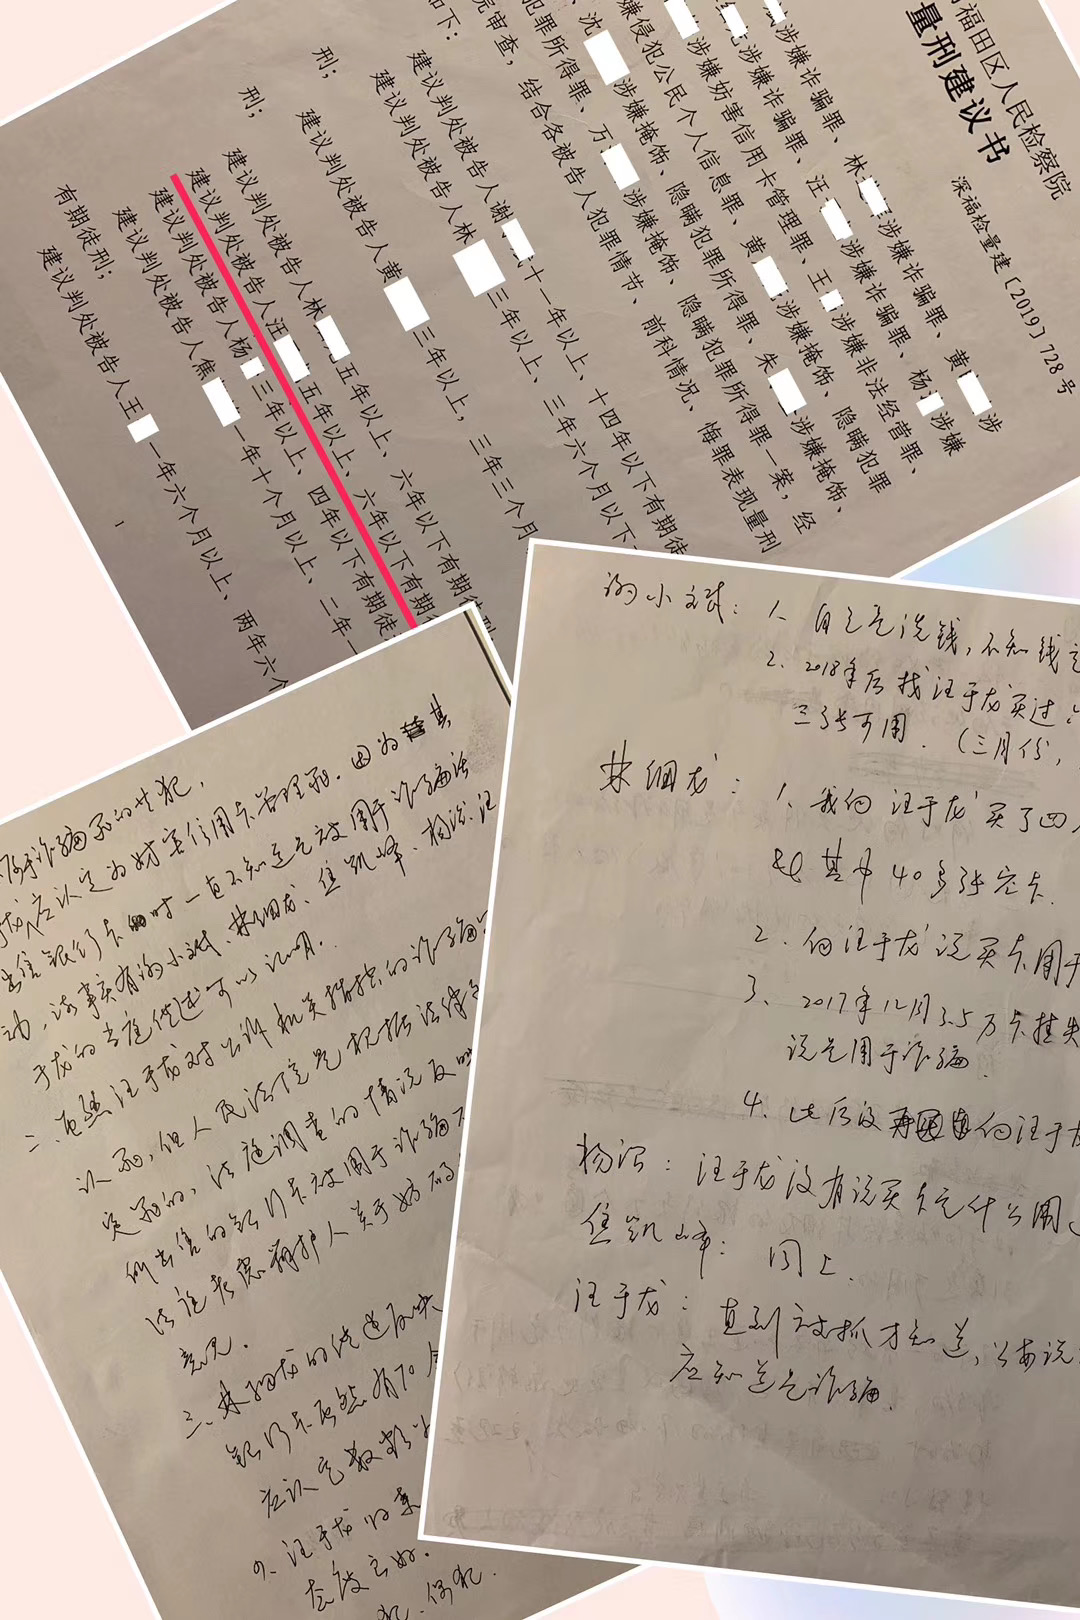 福田区人民检察院
量刑建议书
深福检量建〔2019〕728号
涉嫌诈骗罪、林 涉嫌诈骗罪、黄 涉
涉嫌诈骗罪、汪 涉嫌诈骗罪、杨 涉嫌
涉嫌妨害信用卡管理罪、王 涉嫌非法经营罪、
嫌侵犯公民个人信息罪、黄 涉嫌掩饰、隐瞒犯罪
沈 涉嫌掩饰、隐瞒犯罪所得罪、朱 涉嫌掩饰、
犯罪所得罪、万 涉嫌掩饰、隐瞒犯罪所得罪一案，经
院审查，结合各被告人犯罪情节、前科情况、悔罪表现量刑
如下：
建议判处被告人谢 十一年以上、十四年以下有期徒
建议判处被告人林 三年以上、三年六个月以下
刑；
建议判处被告人黄 三年以上，三年三个月
刑；
建议判处被告人林 五年以上、六年以下有期徒刑
建议判处被告人汪 五年以上、六年以下有期
建议判处被告人杨 三年以上、四年以下有期徒
建议判处被告人焦 一年十个月以上、二年一
有期徒刑；
建议判处被告人王 一年六个月以上、两年六个
1
属于诈骗罪的共犯，
龙应认定为妨害信用卡管理罪．因为其
出售银行卡时一直不知道是被用于诈骗活
动，该事实有谢小斌、林细龙、焦凯峰、杨 汪
于龙的当庭供述可以证明．
二、虽然汪于龙对公诉机关指控的诈骗
认罪，但人民法院是根据法律
定罪的，法庭调查的情况反映
所出售的银行卡被用于诈骗
法庭考虑辩护人关于妨
意见．
三、林细龙的供述反映
银行卡虽然有70
应认定数
汪于龙归案
态度
犯、偶犯．
谢小斌：1、自己是洗钱，不知钱
2、2018年后找汪于龙买过
可用．（三月份，
林细龙：1、我向汪于龙买了四
其中40多张完卡．
2、向汪于龙说买卡用于
3、2017年12月3.5万卡挂失
说是用于诈骗．
4、此后没 向汪于龙
杨 ：汪于龙没有说买卡是什么用
焦凯峰：同上．
汪于龙：直到被抓才知道，公安说
应知道是诈骗．